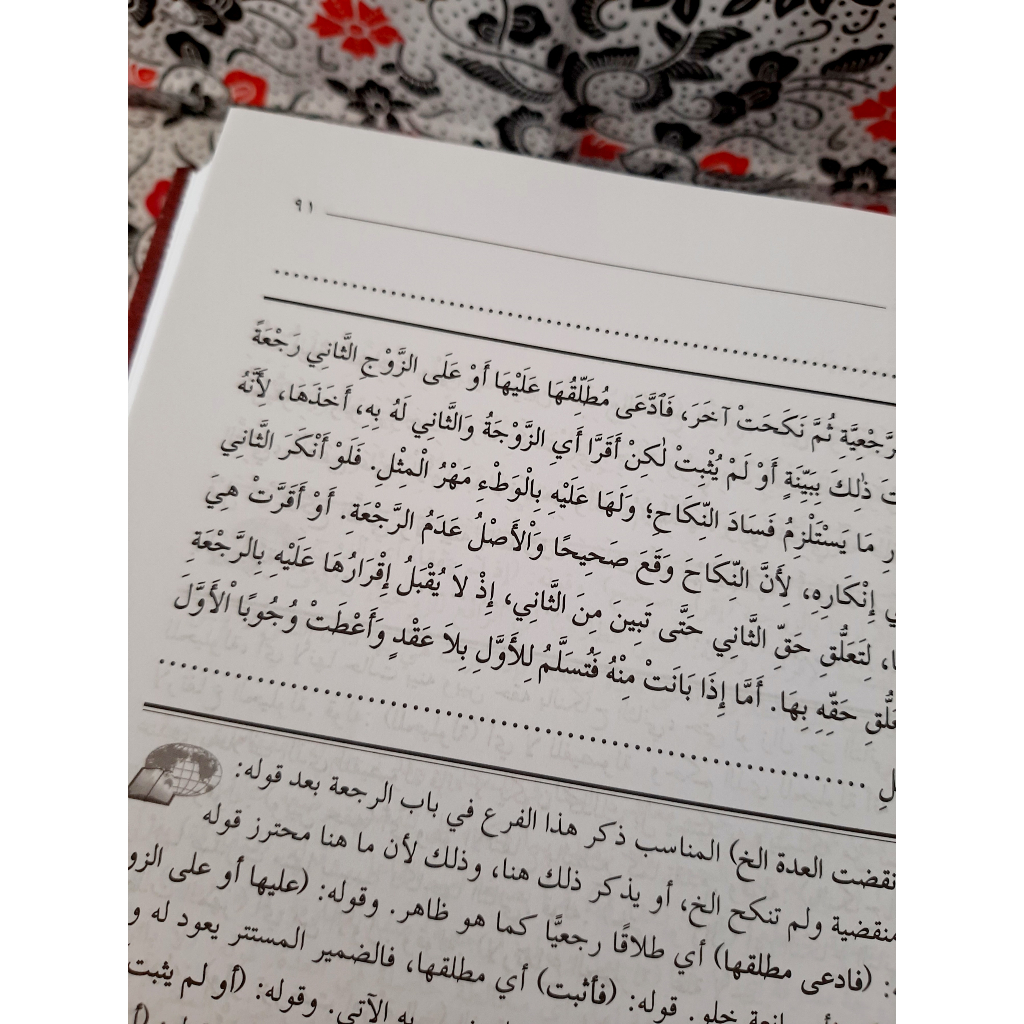 ٩١
آخَرَ، فَادَّعَى مُطَلِّقُهَا عَلَيْهَا أَوْ عَلَى الزَّوْجِ الثَّانِي رَجْعَةً
ذٰلِكَ بِبَيِّنَةٍ أَوْ لَمْ يُثْبِتْ لٰكِنْ أَقَرَّا أَيِ الزَّوْجَةُ وَالثَّانِي لَهُ بِهِ، أَخَذَهَا، لِأَنَّهُ
مَا يَسْتَلْزِمُ فَسَادَ النِّكَاحِ؛ وَلَهَا عَلَيْهِ بِالْوَطْءِ مَهْرُ الْمِثْلِ. فَلَوْ أَنْكَرَ الثَّانِي
إِنْكَارِهِ، لِأَنَّ النِّكَاحَ وَقَعَ صَحِيحًا وَالْأَصْلُ عَدَمُ الرَّجْعَةِ. أَوْ أَقَرَّتْ هِيَ
لِتَعَلُّقِ حَقِّ الثَّانِي حَتَّى تَبِينَ مِنَ الثَّانِي، إِذْ لَا يُقْبَلُ إِقْرَارُهَا عَلَيْهِ بِالرَّجْعَةِ
حَقِّهِ بِهَا. أَمَّا إِذَا بَانَتْ مِنْهُ فَتُسَلَّمُ لِلْأَوَّلِ بِلَا عَقْدٍ وَأَعْطَتْ وُجُوبًا الْأَوَّلَ
نقضت العدة الخ) المناسب ذكر هذا الفرع في باب الرجعة بعد قوله:
منقضية ولم تنكح الخ، أو يذكر ذلك هنا، وذلك لأن ما هنا محترز قوله
(فادعى مطلقها) أي طلاقًا رجعيًّا كما هو ظاهر. وقوله: (عليها أو على الزو
خلو. قوله: (فأثبت) أي مطلقها، فالضمير المستتر يعود له و
به الآتي. وقوله: (أو لم يثبت